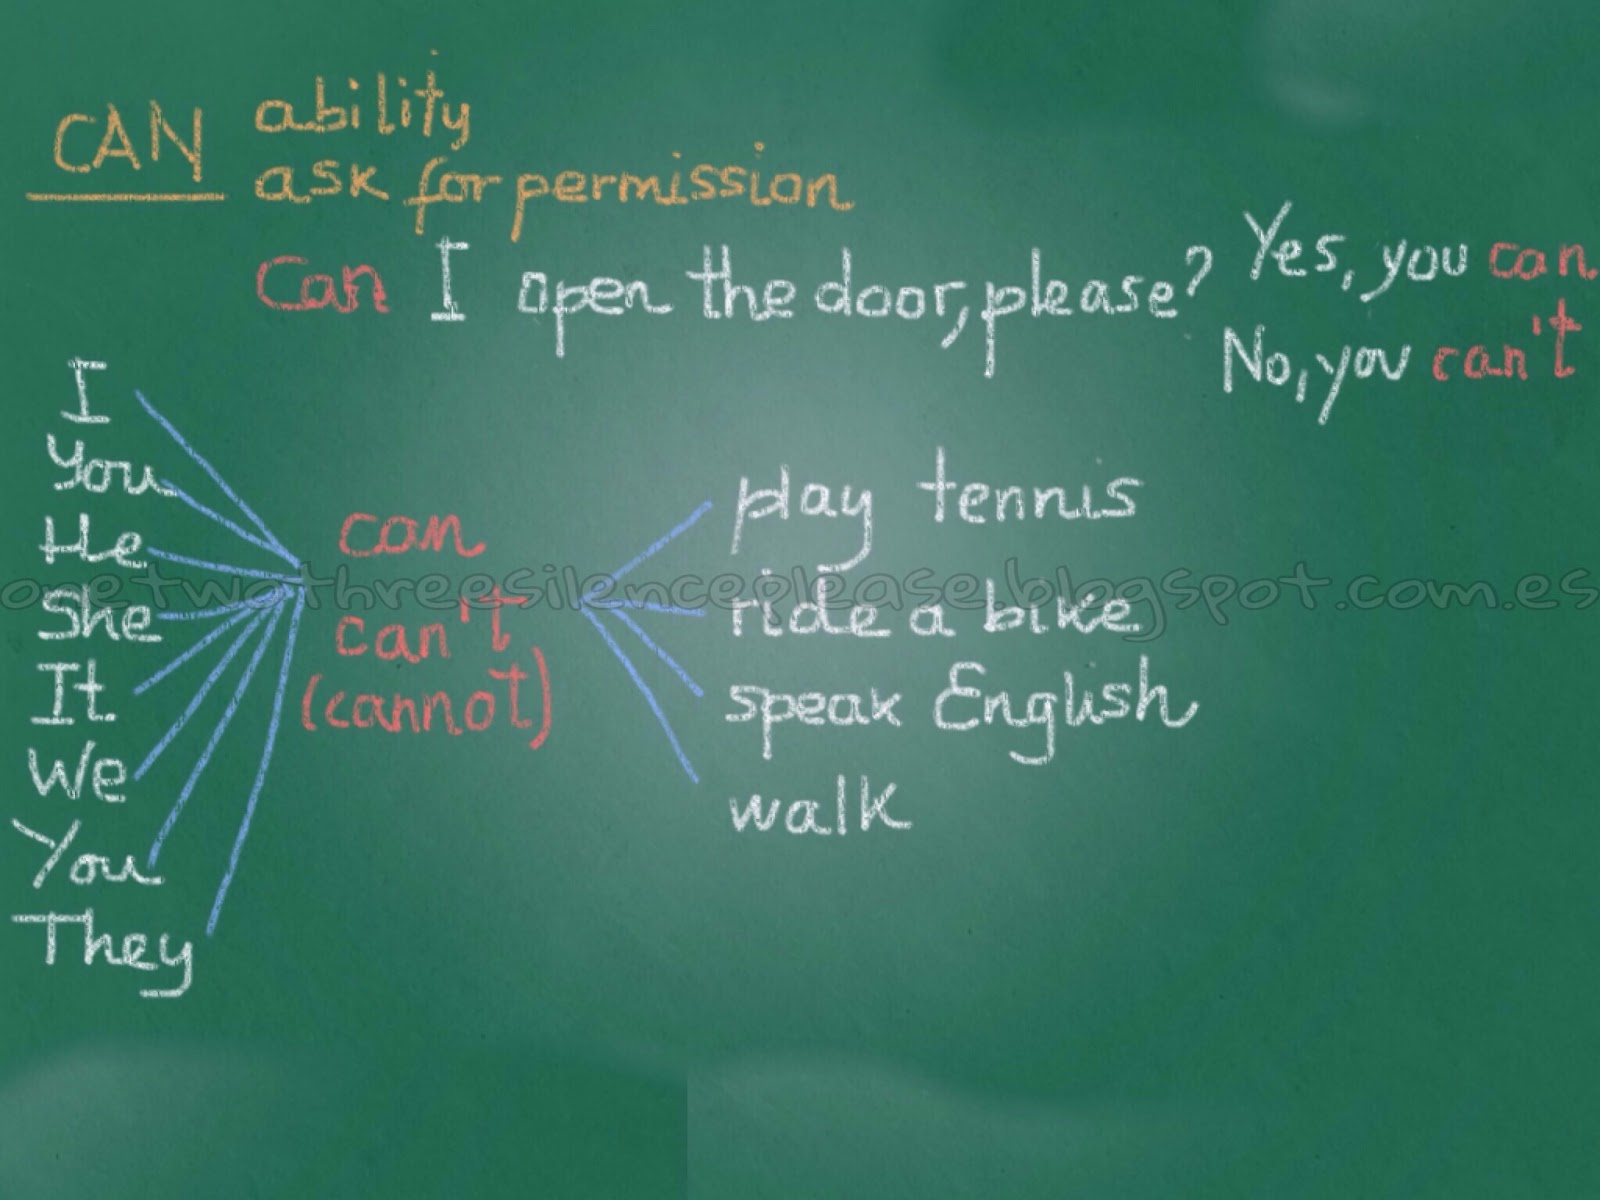 CAN ability
ask for permission
Can I open the door, please? Yes, you can
No, you can't
I
You
He
She
It
We
You
They
can
can't
(cannot)
play tennis
ride a bike
speak English
walk
onetwothreesilenceplease.blogspot.com.es